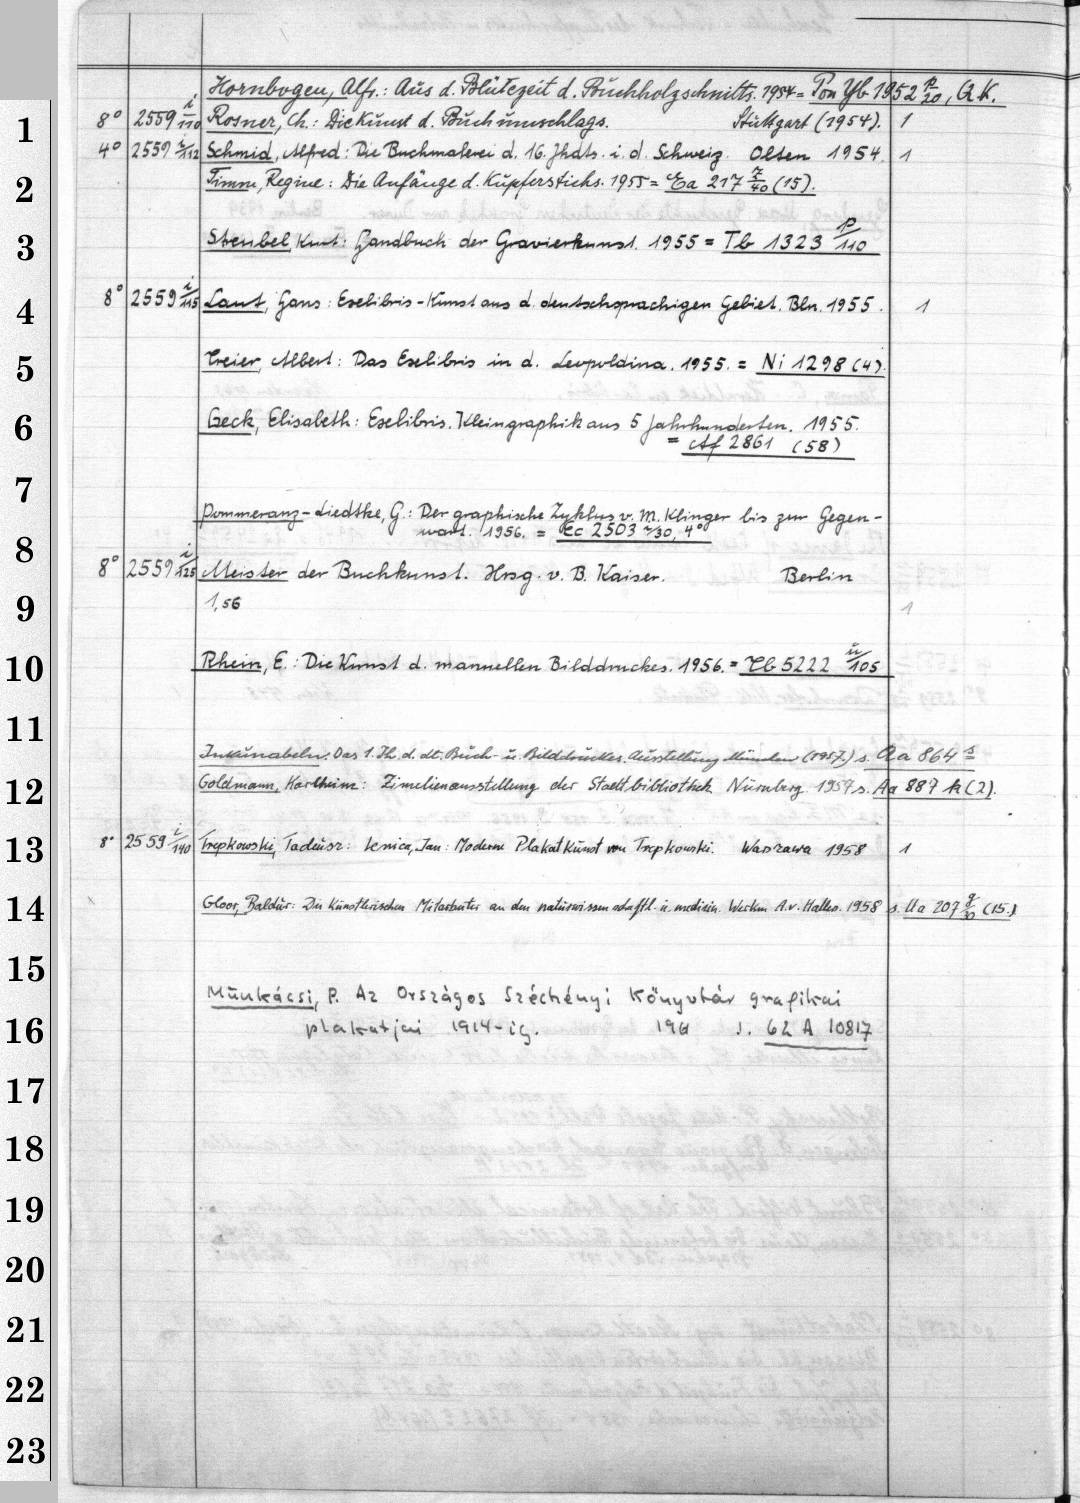 Hornbogen, Alfr.: Aus d. Blütezeit d. Buchholzschnitts. 1954 = Pon Yb 1952 k/20, GK.
1 8° 2559 i/110 Rosner, Ch.: Die Kunst d. Buchumschlags. Stuttgart (1954). 1
4° 2559 i/112 Schmid, Alfred: Die Buchmalerei d. 16. Jhdts. i. d. Schweiz. Olten 1954. 1
2 Timm, Regine: Die Anfänge d. Kupferstichs. 1955 = Ea 217 z/40 (15).
3 Steubel, Kurt: Handbuch der Gravierkunst. 1955 = Tb 1323 p/110
4 8° 2559 i/115 Laut, Hans: Exlibris-Kunst aus d. deutschsprachigen Gebiet. Bln. 1955. 1
5 Treier, Albert: Das Exlibris in d. Leopoldina. 1955. = Ni 1298 (4).
6 Geck, Elisabeth: Exlibris. Kleingraphik aus 5 Jahrhunderten. 1955.
= Af 2861 (58)
7
Pommeranz-Liedtke, G.: Der graphische Zyklus v. M. Klinger bis zur Gegen-
wart. 1956. = Ec 2503 r/30, 4°
8 8° 2559 i/125 Meister der Buchkunst. Hrsg. v. B. Kaiser. Berlin
9 1,56 1
10 Rhein, E.: Die Kunst d. manuellen Bilddruckes. 1956. = Tb 5222 u/105
11
Inkunabeln. Das 1. Jh. d. dt. Buch- u. Bilddruckes. Ausstellung München (1957.) s. Aa 864 s
12 Goldmann, Karlheinz: Zimelienausstellung der Stadtbibliothek Nürnberg. 1957 s. Aa 887 k (2).
13 8° 2559 i/140 Trepkowski, Tadeusz: Lenica, Jan: Moderne Plakatkunst von Trepkowski. Warszawa 1958 1
14 Gloor, Baldur: Die Künstlerischen Mitarbeiter an den naturwissenschaftl. u. medizin. Werken A. v. Haller. 1958 s. Ua 207 g/30 (15.)
15
Munkácsi, P. Az Országos Széchényi Könyvtár grafikai
16 plakatjai 1914-ig. 196 s. 62 A 10817
17
18
19
20
21
22
23